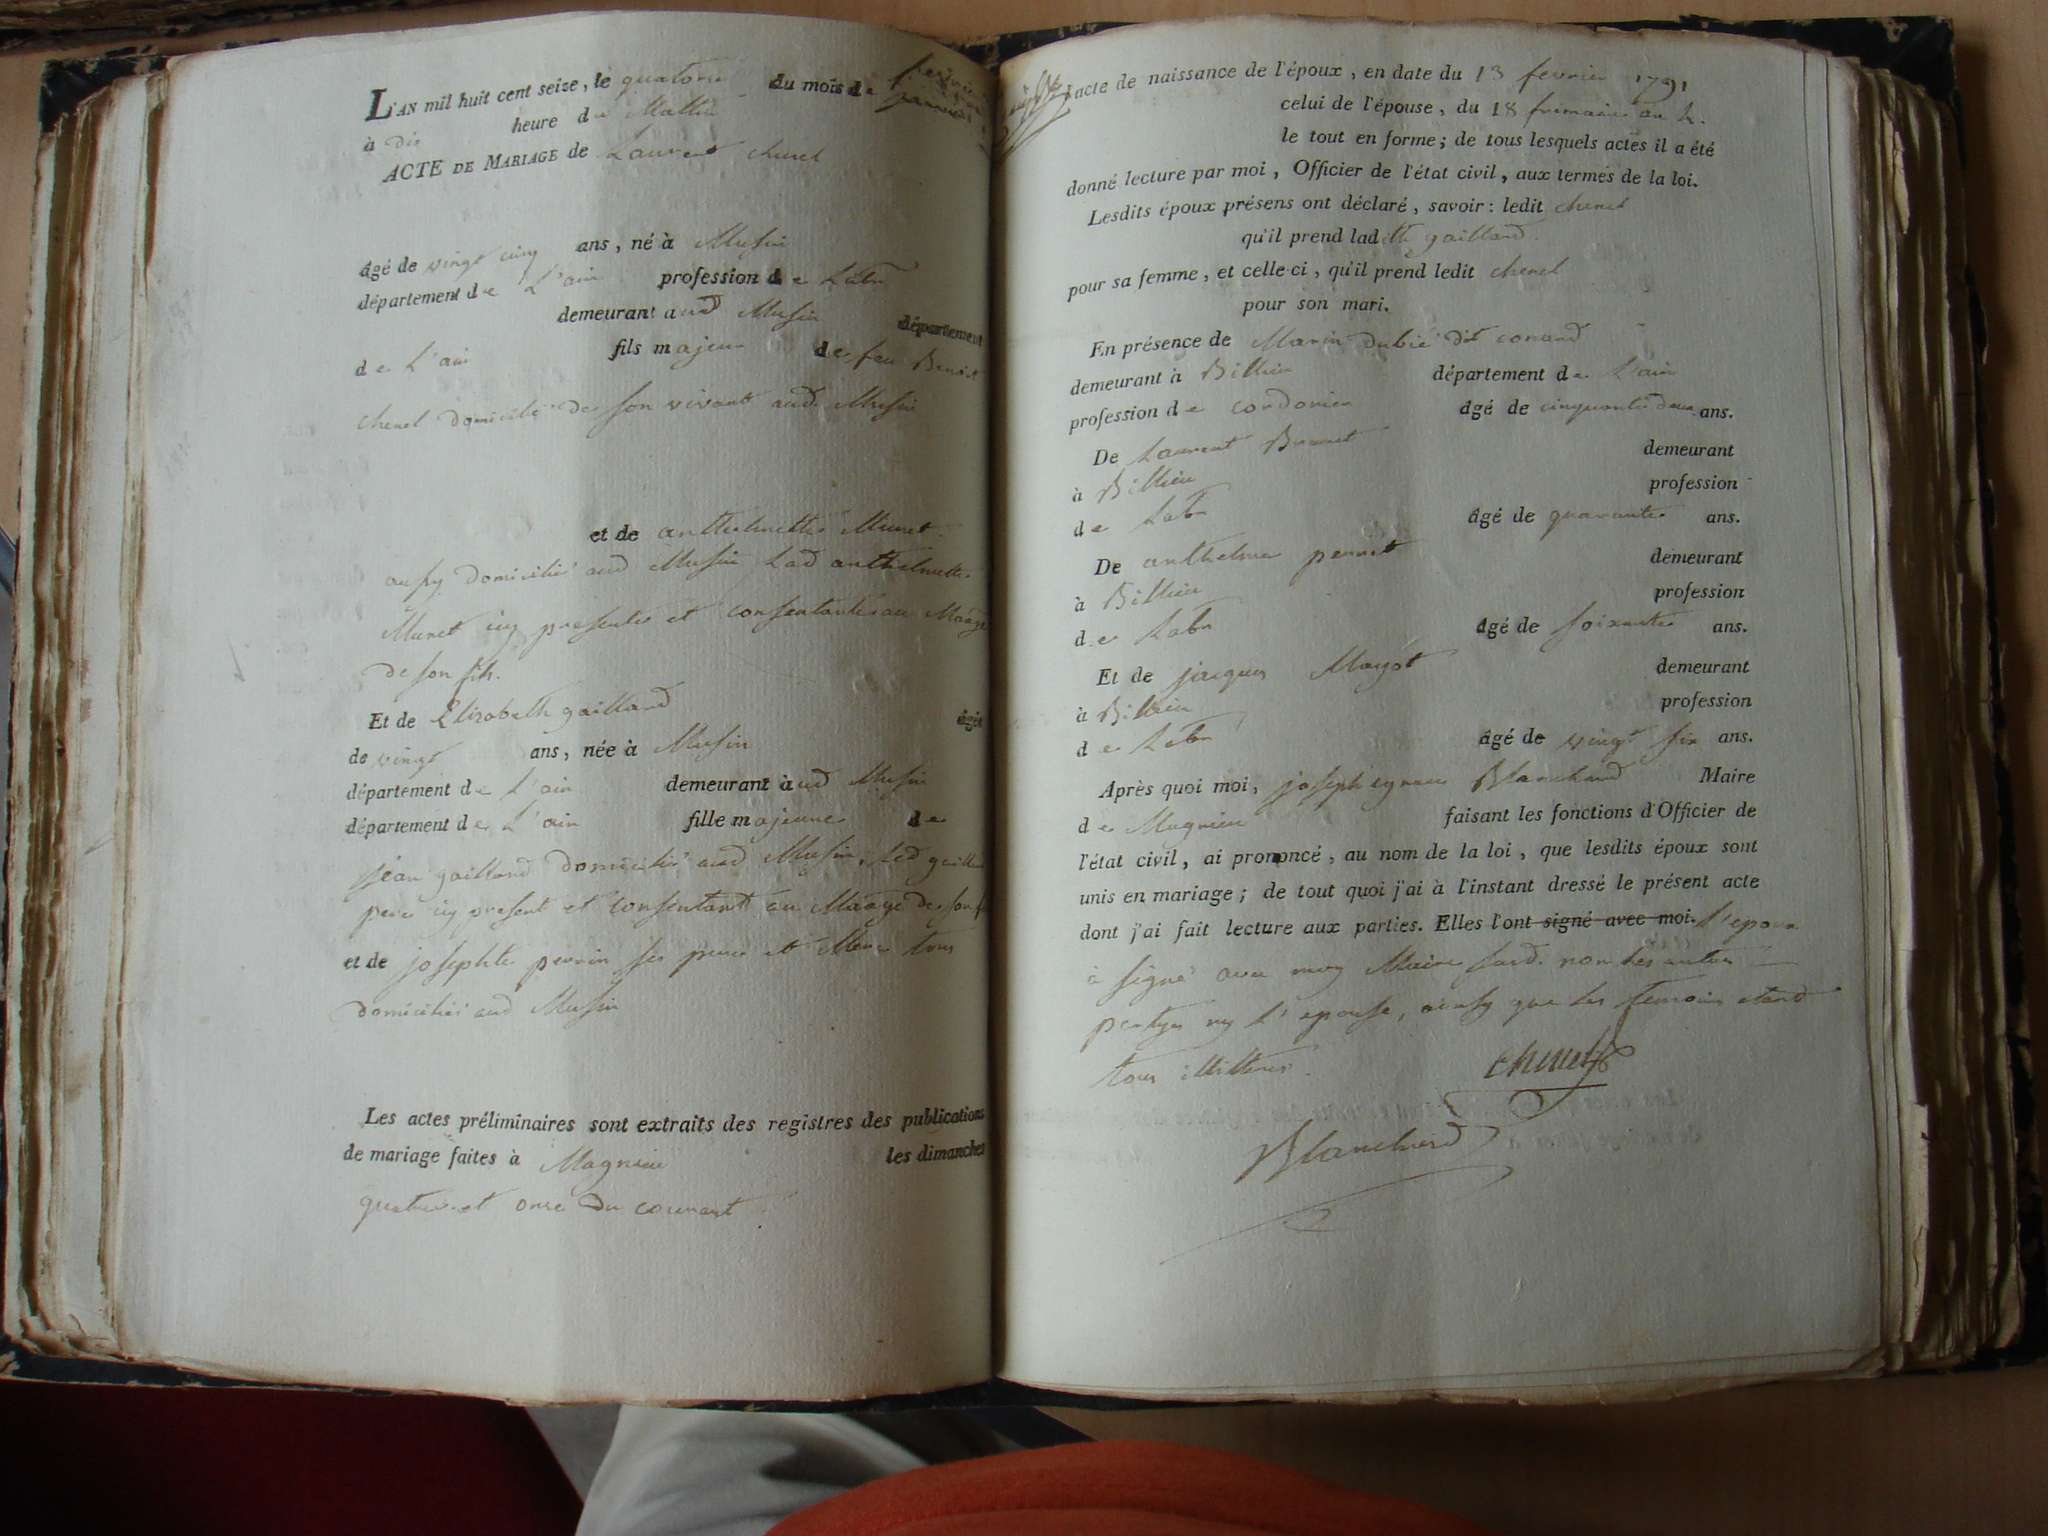 L'AN mil huit cent seize, le quatorze du mois de fevrier
à dix heure du Mattin
ACTE DE MARIAGE de Laurent chenel
âgé de vingt cinq ans, né à Musin
département de L'ain profession de Labr
demeurant aud Musin département
de L'ain fils majeur de feu Benoit
chenel domicilié de son vivant aud. Musin
et de anthelmette Munet
aussy domicilié aud Musin Lad anthelmette
Munet icy presente et consentante au Mãage
de son fils.
Et de Elizabeth gailland âgée
de vingt ans, née à Musin
département de L'ain demeurant à aud Musin
département de L'ain fille majeure de
jean gailland domicilié aud Musin, Led gailland
pere icy present et Consentant au Mãage de
et de josephte perrin ses pere et Mere tous
domiciliés aud Musin
Les actes préliminaires sont extraits des registres des publications
de mariage faites à Magnieu les dimanches
quatre et onze du courant
l'acte de naissance de l'époux, en date du 13 fevrier 1791
celui de l'épouse, du 18 frimaire an 4.
le tout en forme; de tous lesquels actes il a été
donné lecture par moi, Officier de l'état civil, aux termes de la loi.
Lesdits époux présens ont déclaré, savoir: ledit chenel
qu'il prend ladite gailland
pour sa femme, et celle-ci, qu'il prend ledit chenel
pour son mari.
En présence de Marin dubié dit conand
demeurant à Billieu département de L'ain
profession de cordonier âgé de cinquante deux ans.
De Laurent Brunet demeurant
à Billieu profession
de Labr âgé de quarante ans.
De anthelme pernet demeurant
à Billieu profession
de Labr âgé de soixante ans.
Et de jacques Mayot demeurant
à Billieu profession
de Labr âgé de vingt six ans.
Après quoi moi, joseph ignace Blanchard Maire
de Magnieu faisant les fonctions d'Officier de
l'état civil, ai prononcé, au nom de la loi, que lesdits époux sont
unis en mariage; de tout quoi j'ai à l'instant dressé le présent acte
dont j'ai fait lecture aux parties. Elles l'ont signé avec moi. L'epoux
à signé avec moy Maire susd. non les autres
partyes ny L'epouse, ainsy que les temoins etand
tous illitteres.
chenel
Blanchard